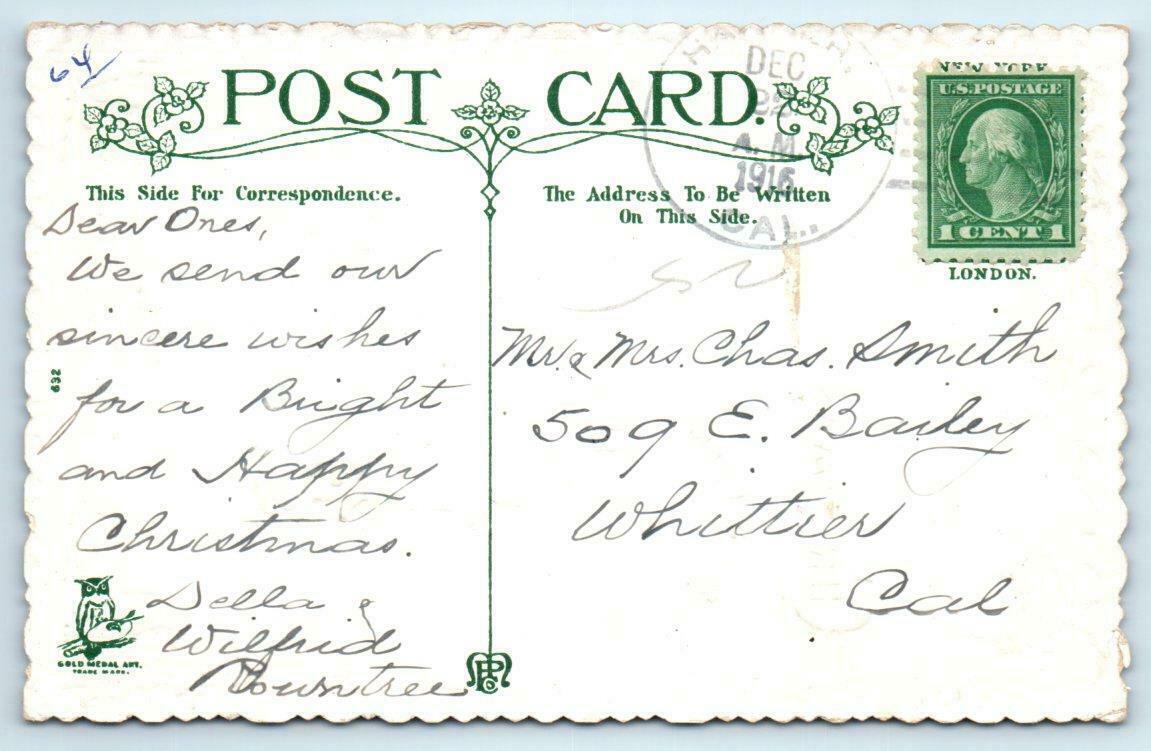 64
POST CARD.
This Side For Correspondence.
Dear Ones,
We send our
sincere wishes
for a Bright
and Happy
Christmas.
Della &
Wilfrid
Rowntree
632
GOLD MEDAL ART.
TRADE MARK.
The Address To Be Written
On This Side.
DEC
A.M.
1916
CAL.
NEW YORK
U.S. POSTAGE
1 CENT 1
LONDON.
Mr. & Mrs. Chas. Smith
509 E. Bailey
Whittier
Cal